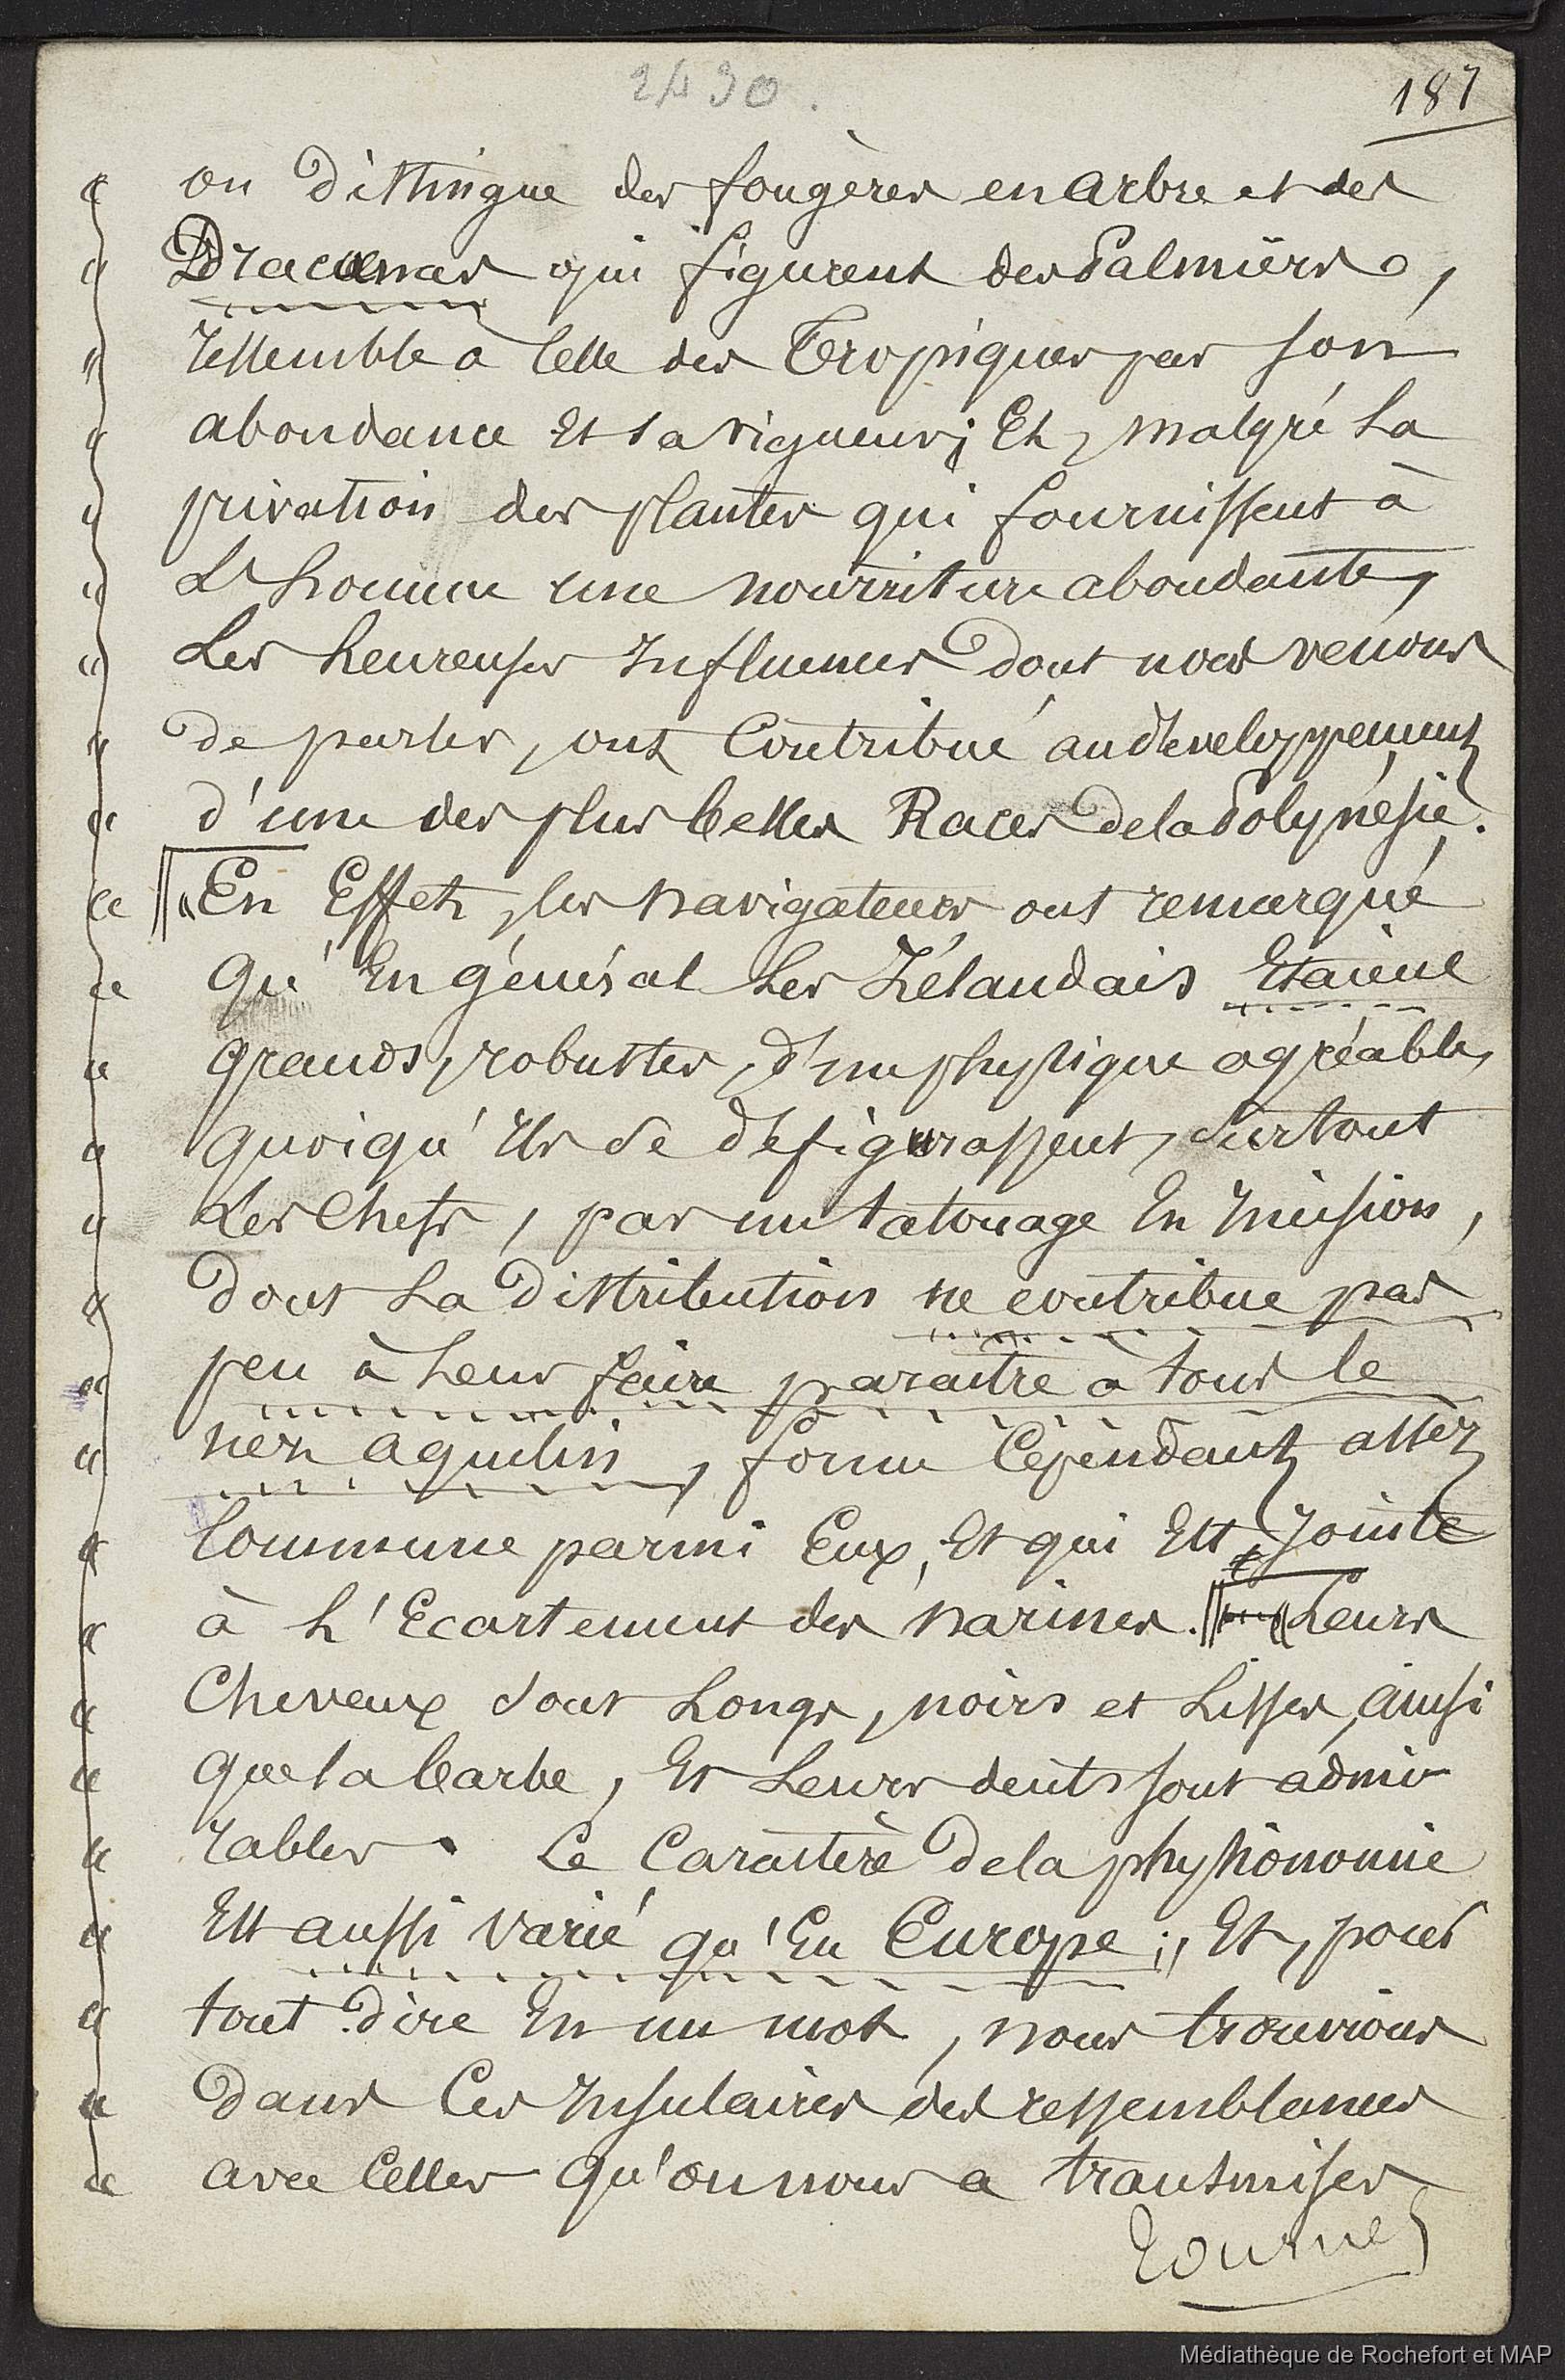 2430.
187
« on distingue des fougères en arbre et des
« Dracænas qui figurent des Palmiers,
« ressemble à Celle des Tropiques par son
« abondance Et sa vigueur; Et, malgré La
« privation des plantes qui fournissent à
« L'homme une nourriture abondante,
« Les heureuses Influences dont nous venons
« de parler, ont Contribué au développement
« d'une des plus belles Races de la Polynésie.
« "En Effet, les navigateurs ont remarqué
« qu'En général Les Zélandais Etaient
« grands, robustes, d'un physique agréable,
« quoiqu'Ils se défigurassent, surtout
« Les Chefs, par un tatouage En Incision,
« dont La Distribution ne contribue pas
« peu à Leur faire paraitre à tous le
« nez aquilin, forme Cependant assez
« Commune parmi Eux, Et qui Est Jointe
« à L'Ecartement des narines. "Leurs
« Cheveux sont Longs, noirs et Lisses, ainsi
« que la barbe, Et Leurs dents sont admi-
« rables. Le Caractère de la physionomie
« Est aussi varié qu'En Europe; Et, pour
« tout dire En un mot, nous trouvions
« dans Ces Insulaires des ressemblances
« avec Celles qu'on nous a transmises
Tournez
Médiathèque de Rochefort et MAP